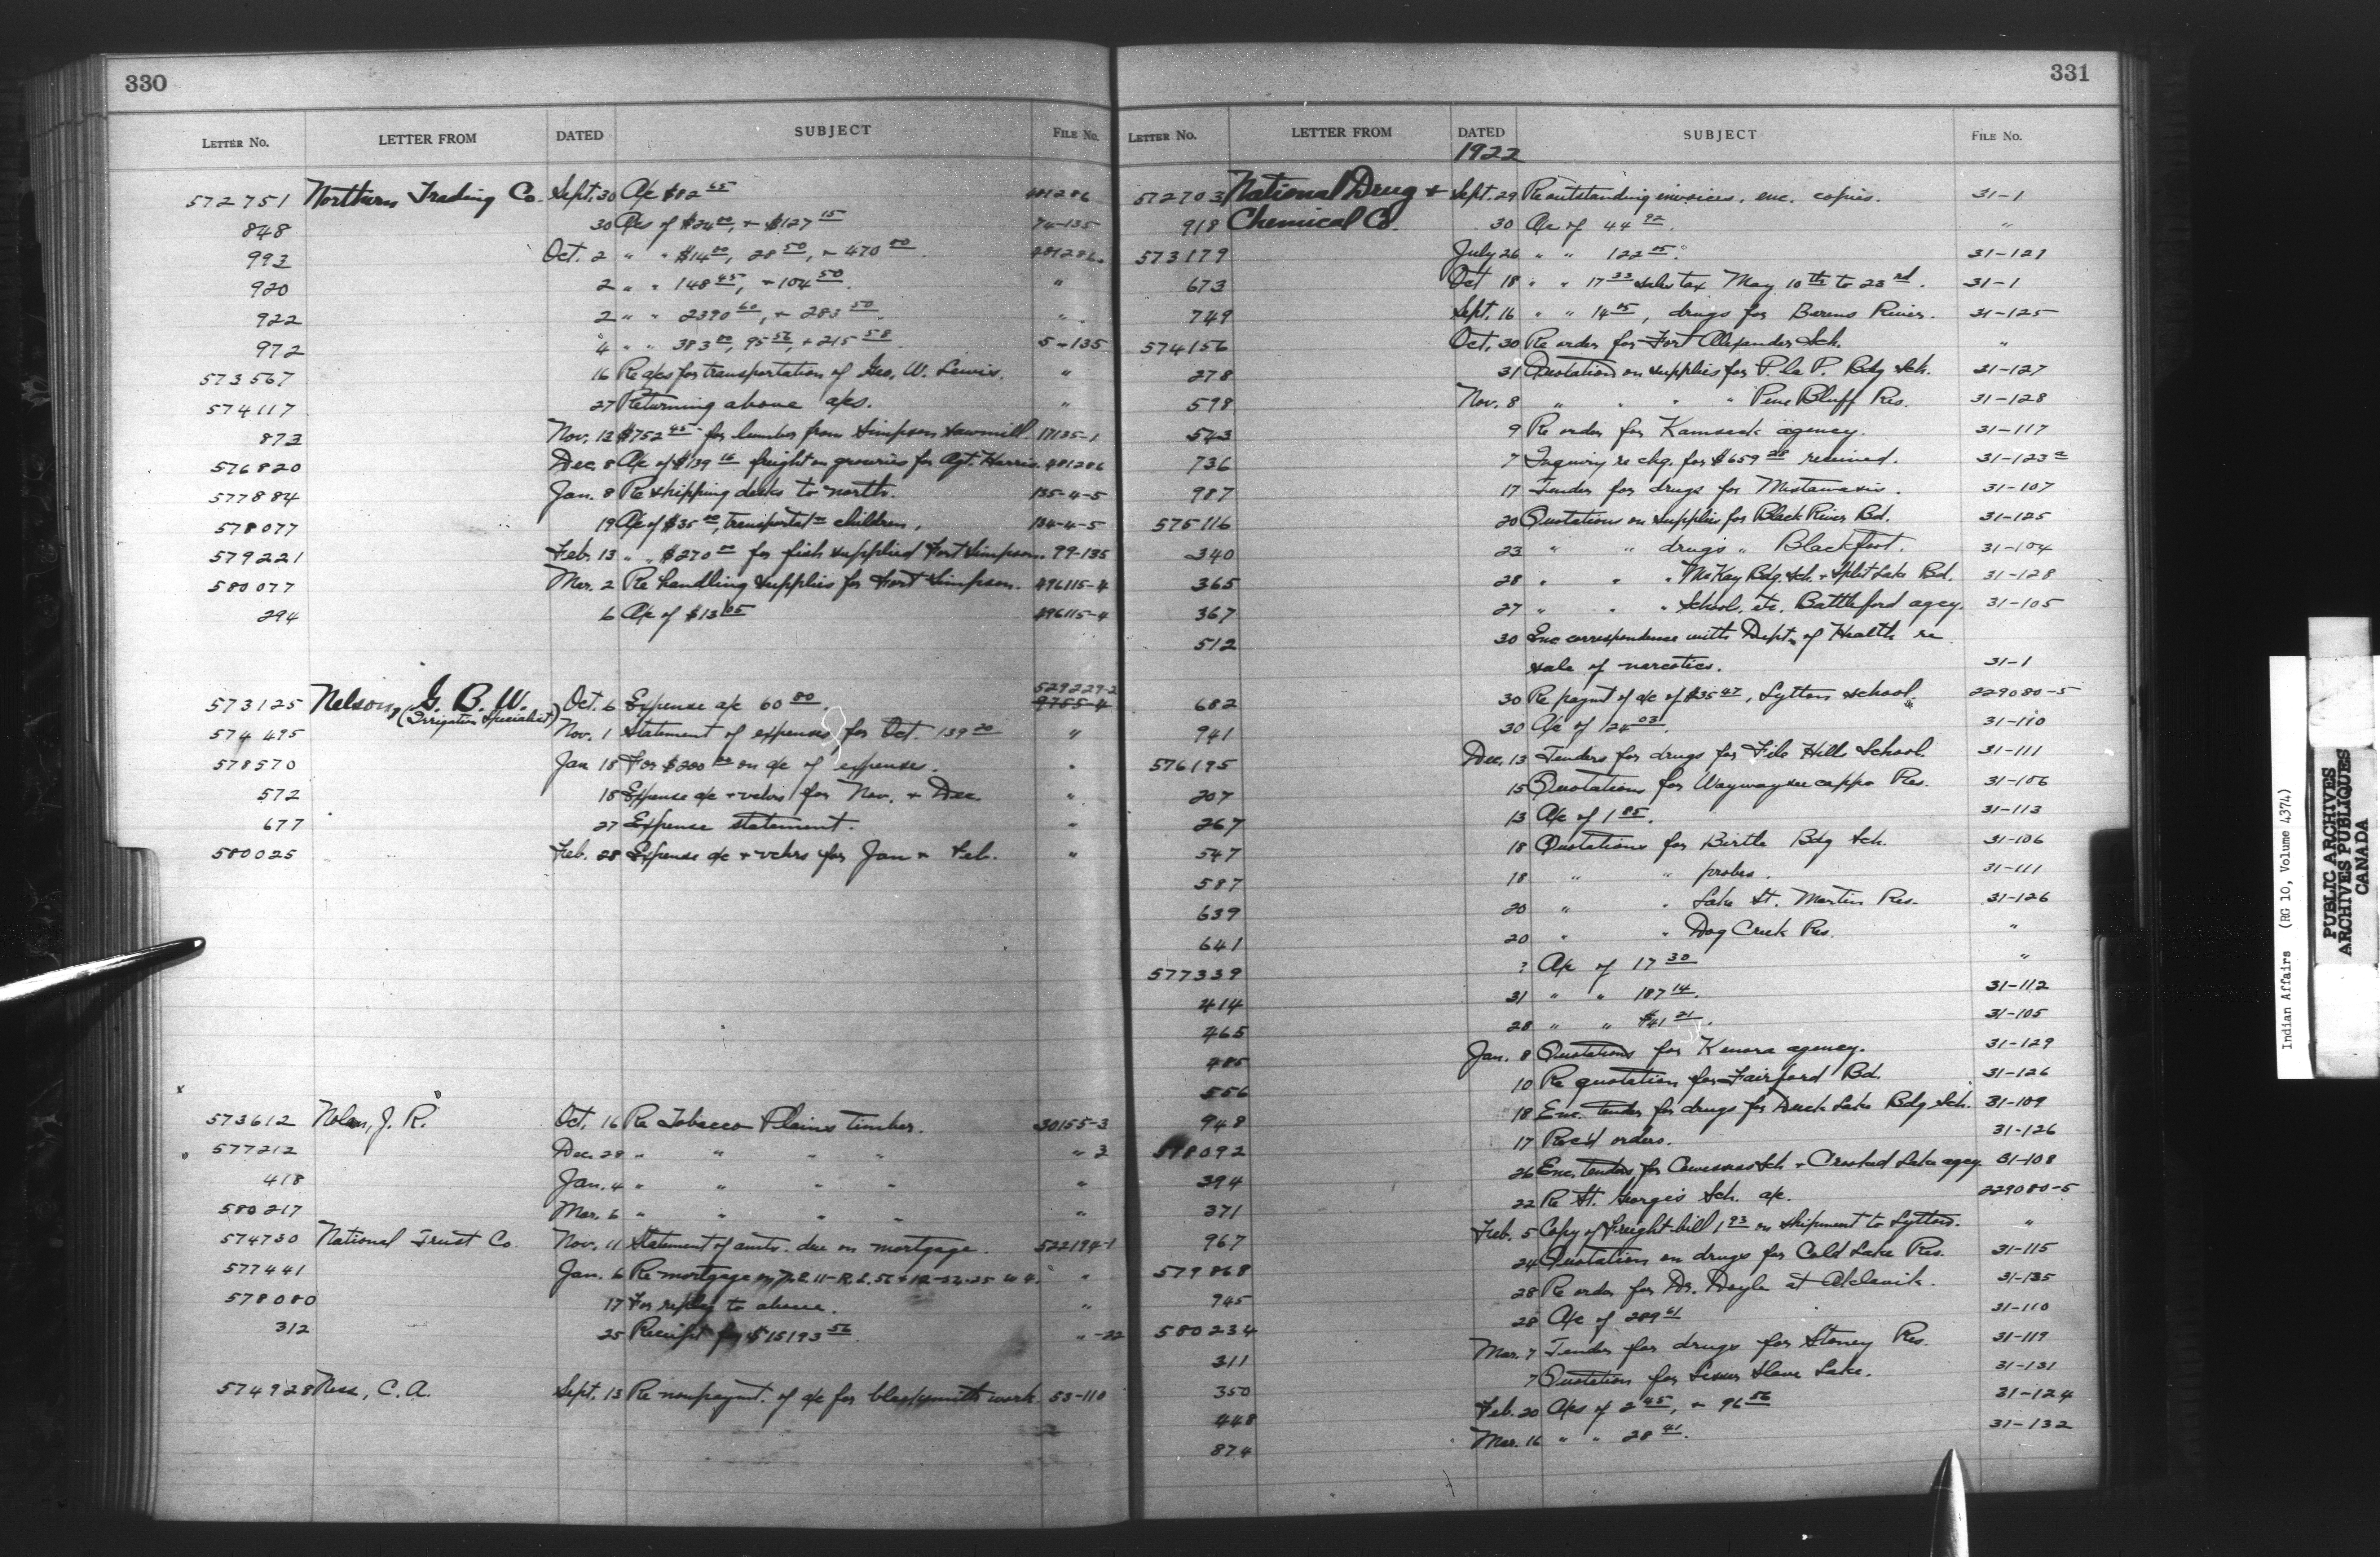 330
LETTER No. LETTER FROM DATED SUBJECT FILE No.
572751 Northern Trading Co. Sept. 30 A/c $82 65 481286
848 30 A/cs of $24 00, + $127 15 74-135
993 Oct. 2 " " $14 00, 28 50, + 470 00 481286
920 2 " " 148 45, + 104 50 "
922 2 " " 2390 60, + 283 50 "
972 4 " " 383 00, 95 56, + 215 58 5-135
573567 16 Re a/cs for transportation of Geo. W. Lewis. "
574117 27 Returning above a/cs. "
873 Nov. 13 $752 45 for lumber from Simpson sawmill. 17135-1
576820 Dec. 8 A/c of $139 16 freight on groceries for Agt. Harris. 481286
577884 Jan. 8 Re shipping desks to north. 135-4-5
578077 19 A/c of $35 00, transportatn children. 134-4-5
579221 Feb. 13 " " $270 00 for fish supplied Fort Simpson. 99-135
580077 Mar. 2 Re handling supplies for Fort Simpson. 496115-4
294 6 A/c of $13 05 496115-4
573125 Nelson, G. B. W. Oct. 6 Expense a/c 60 80. 529229-2
(Irrigation Specialist) 9755-4
574495 Nov. 1 Statement of expenses for Oct. 139 20 "
578570 Jan 18 For $200 00 on a/c of expenses. "
572 18 Expense a/c + vchrs for Nov. + Dec. "
677 27 Expense statement. "
580025 Feb. 28 Expense a/c + vchrs for Jan + Feb. "
573612 Nolan, J. R. Oct. 16 Re Tobacco Plains timber. 30155-3
577212 Dec. 28 " " " " " 3
418 Jan. 4 " " " " "
580217 Mar. 6 " " " " "
574730 National Trust Co. Nov. 11 Statement of amts. due on mortgage. 522194-1
577441 Jan. 6 Re mortgage "
578080 17 For reply to above. "
312 25 Receipt for $15193 56. " -22
574928 Ness, C. A. Sept. 13 Re nonpaymt. of a/c for blacksmith work. 53-110
331
LETTER No. LETTER FROM DATED SUBJECT FILE No.
1922
572703 National Drug + Sept. 29 Re outstanding invoices, enc. copies. 31-1
918 Chemical Co. 30 A/c of 44 92. "
573179 July 26 " " 122 05. 31-121
673 Oct 18 " " 17 33 sales tax May 10th to 23rd. 31-1
749 Sept. 16 " " 14 05, drugs for Berens River. 31-125
574156 Oct. 30 Re order for Fort Alexander Sch. "
278 31 Quotation on supplies for P. la P. Bdg Sch. 31-127
598 Nov. 8 " " " " Pine Bluff Res. 31-128
543 9 Re order for Kamsack agency. 31-117
736 7 Inquiry re chq. for $659 28 received. 31-123a
987 17 Tender for drugs for Mistawasis. 31-107
575116 20 Quotations on supplies for Black River Bd. 31-125
340 23 " " drugs " Blackfoot. 31-104
365 28 " " " McKay Bdg. Sch. + Split Lake Bd. 31-128
367 27 " " " School, etc. Battleford agcy. 31-105
512 30 Enc correspondence with Dept. of Health re
sale of narcotics. 31-1
682 30 Re paymt of a/c of $35 47, Lytton school. 229080-5
941 30 A/c of 124 03. 31-110
576195 Dec. 13 Tenders for drugs for File Hills School. 31-111
207 15 Quotations for Waywayseecappo Res. 31-106
267 13 A/c of 1 85. 31-113
547 18 Quotations for Birtle Bdg Sch. 31-106
587 18 " " probes. 31-111
639 20 " " Lake St. Martin Res. 31-126
641 20 " " Dog Creek Res. "
577339 ? A/c of 17 30 "
414 31 " " 187 14. 31-112
465 28 " " $41 21. 31-105
485 Jan. 8 Quotations for Kenora agency. 31-129
556 10 Re quotation for Fairford Bd. 31-126
948 18 Enc. tender for drugs for Duck Lake Bdg Sch. 31-109
578092 17 Rec'd orders. 31-126
394 26 Enc. tenders for Cowessess Sch. + Crooked Lake agcy. 31-108
371 22 Re St. George's Sch. a/c. 229080-5
967 Feb. 5 Copy of freight bill 1 93 on shipment to Lytton. "
579868 24 Quotation on drugs for Cold Lake Res. 31-115
945 28 Re order for Dr. Doyle at Aklavik. 31-135
580234 28 A/c of 289 61 31-110
311 Mar. 7 Tender for drugs for Stoney Res. 31-119
350 7 Quotation for Lesser Slave Lake. 31-131
448 Feb. 20 A/cs of 2 45, + 96 56 31-124
874 Mar. 16 " " 28 41. 31-132
Indian Affairs (RG 10, Volume 4374)
PUBLIC ARCHIVES
ARCHIVES PUBLIQUES
CANADA